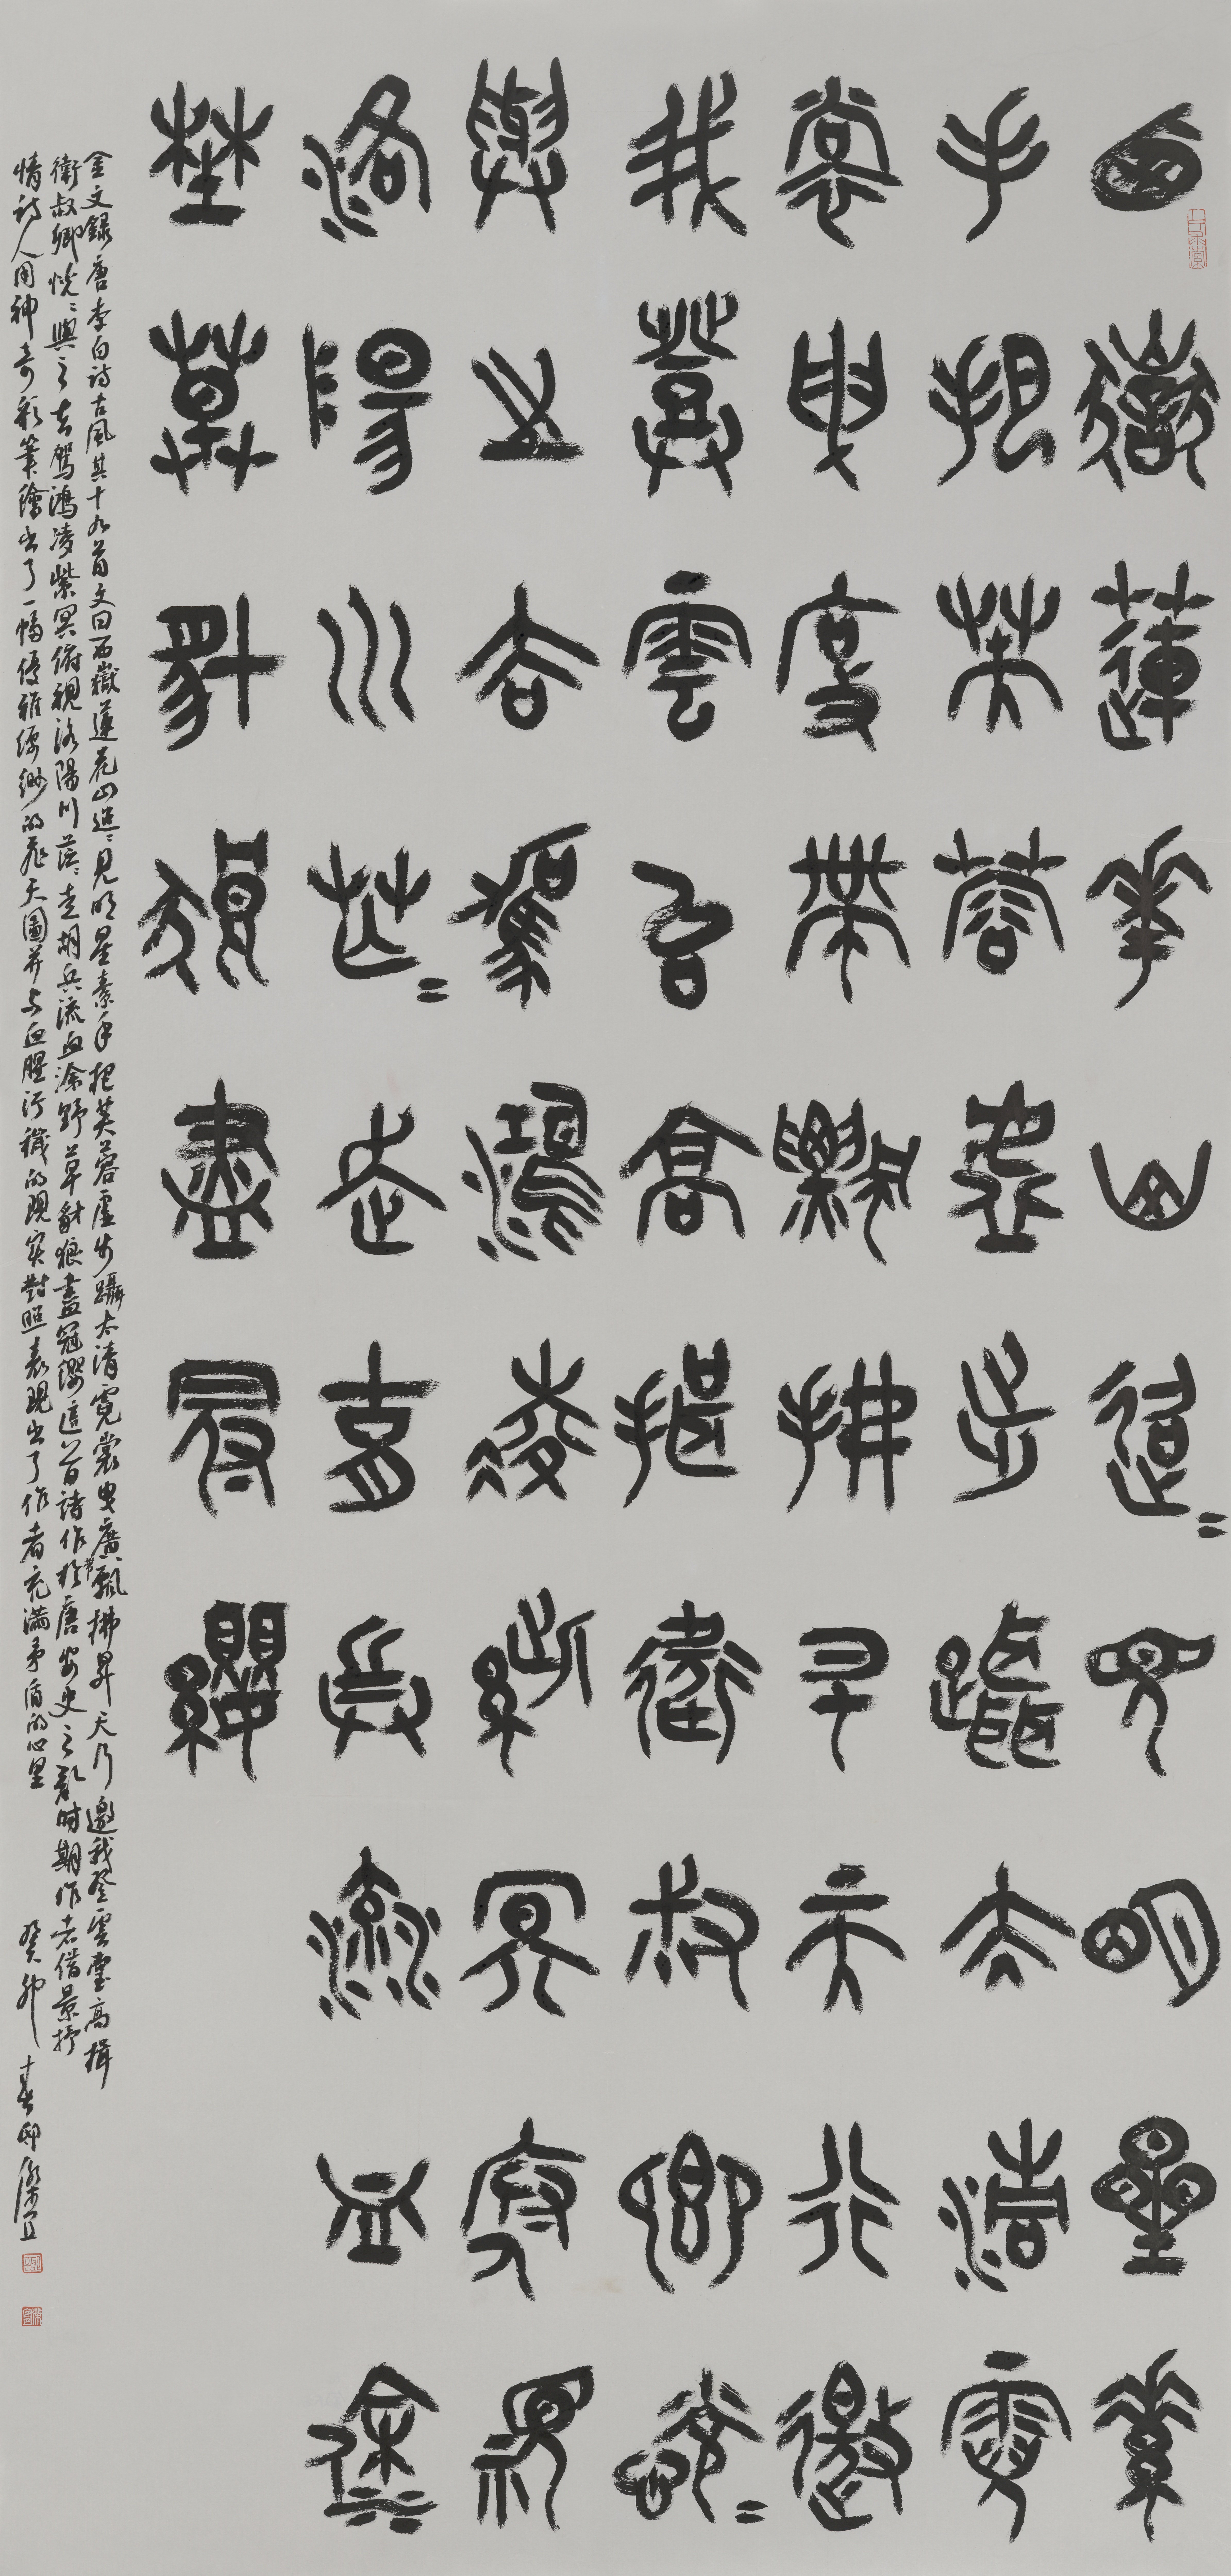 西嶽蓮華山迢〻見明星素
手把芙蓉虛步躡太清霓
裳曳廣帶飄拂升天行邀
我登雲臺高揖衛叔卿恍〻
與之去駕鴻凌紫冥俯視
洛陽川茫〻走胡兵流血塗
野草豺狼盡冠纓
金文錄唐李白詩古風其十九首文曰西嶽蓮花山迢〻見明星素手把芙蓉虛步躡太清霓裳曳廣帶飄拂昇天行邀我登雲臺高揖
衛叔卿恍〻與之去駕鴻凌紫冥俯視洛陽川茫〻走胡兵流血塗野草豺狼盡冠纓這首詩作於唐安史之亂時期作者借景抒
情詩人用神奇彩筆繪出了一幅優雅縹緲的飛天圖并与血腥污穢的現实對照表現出了作者充滿矛盾的心里 癸卯春